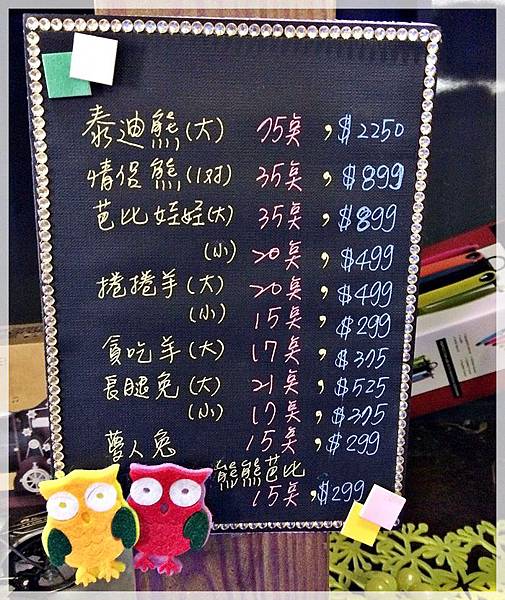 泰迪熊(大) 75点,$2250
情侶熊(1對) 35点,$899
芭比娃娃(大) 35点,$899
(小) 20点,$499
捲捲羊(大) 20点,$499
(小) 15点,$299
貪吃羊(大) 17点,$375
長腿兔(大) 21点,$525
(小) 17点,$375
萝人兔 15点,$299
熊熊芭比
15点,$299